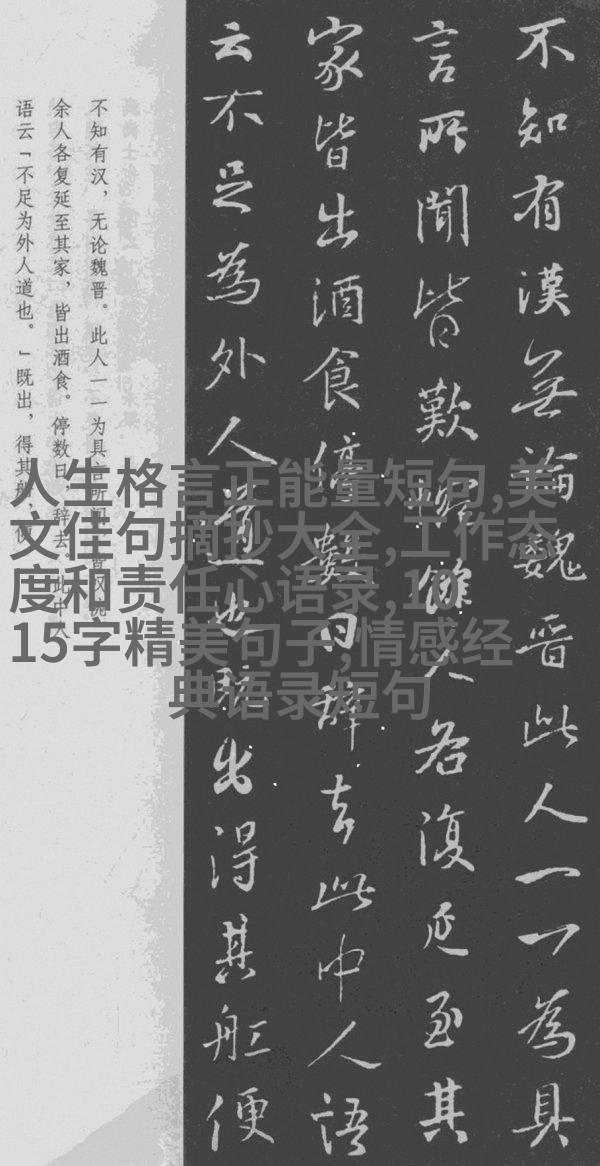 不知有漢無論魏晋此人一一為具
言所聞皆歎惋餘人各復延至其
家皆出酒食停數日辭去此中人語
云不足為外人道也既出得其舡便
不知有汉，无论魏晋。此人一一为具言所闻，皆叹惋
余人各复延至其家，皆出酒食。停数日，辞去。此中人
语云「不足为外人道也。」既出，得其船，便
人生格言正能量短句,美
文佳句摘抄大全,工作态
度和责任心语录,10
15字精美句子,情感经
典语录短句